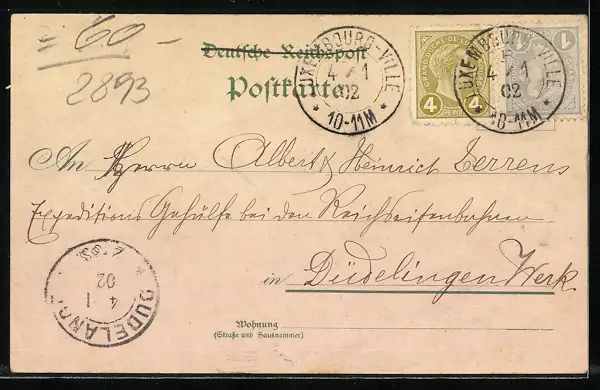 = 60 -
2893
Deutsche Reichspost
Postkarte
LUXEMBOURG-VILLE
4 1
02
* 10-11M *
GRAND-DUCHÉ DE LUXEMBOURG
4 4
LUXEMBOURG-VILLE
4 1
02
* 10-11M *
1 1
An Herrn Albert Heinrich Terrens
Expeditions Gehülfe bei den Reichseisenbahnen
in Düdelingen Werk
Wohnung
(Straße und Hausnummer)
DUDELANGE
4 1
02